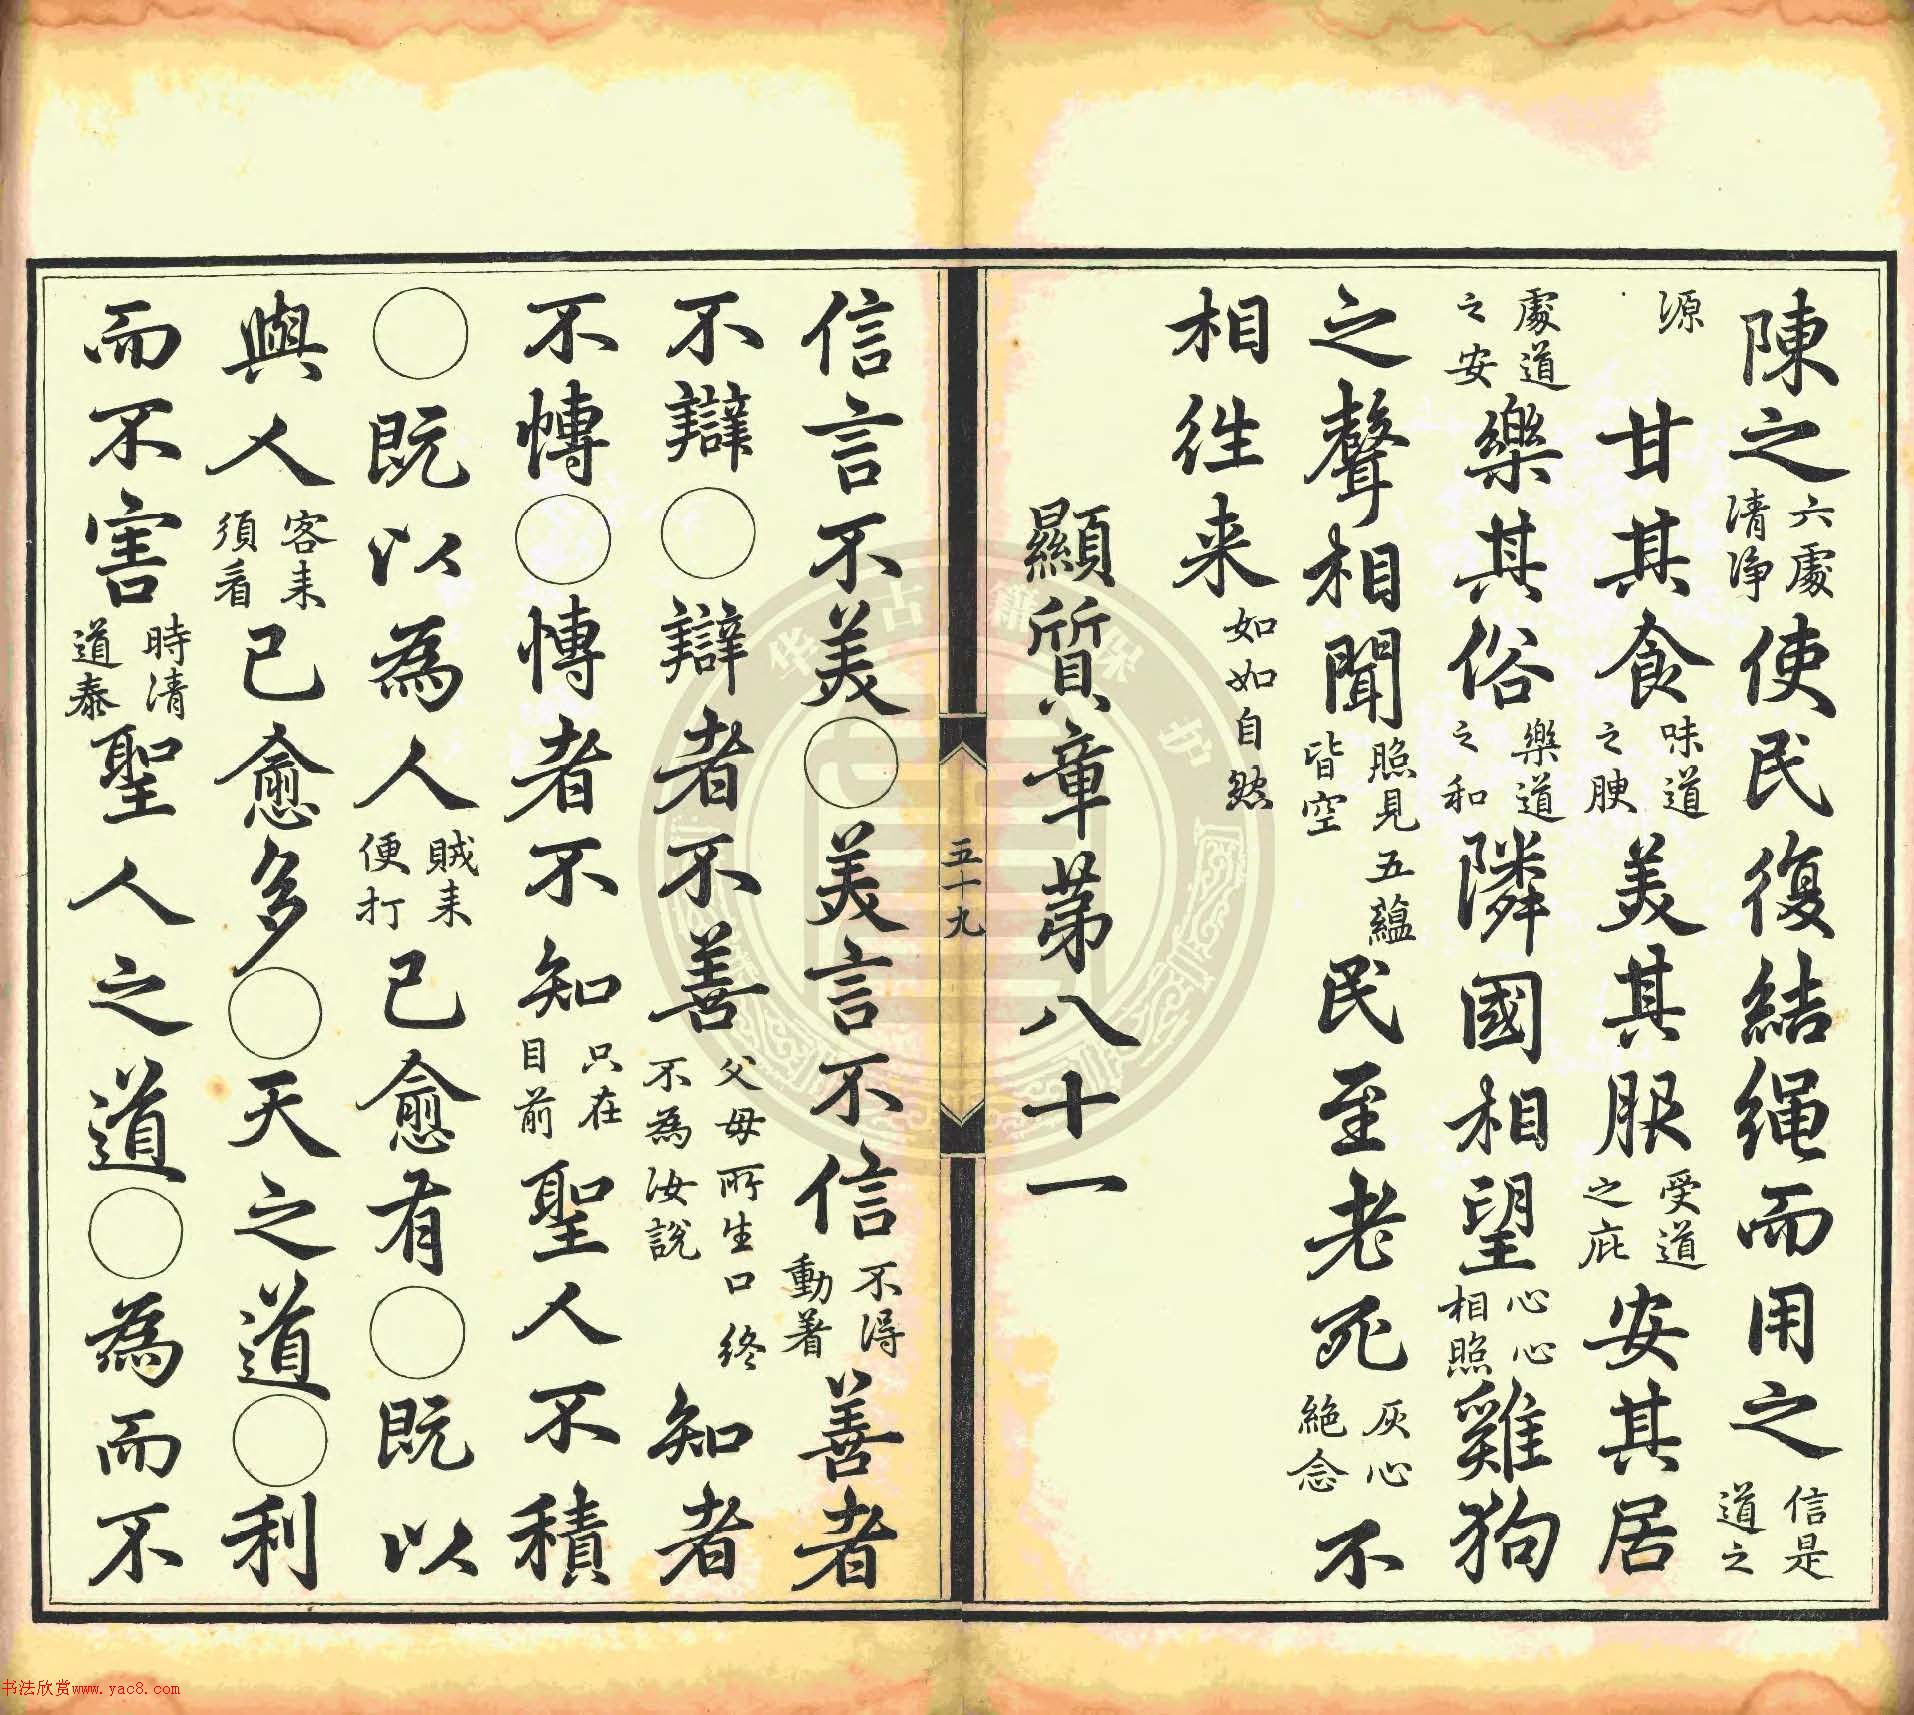 陳之六處清淨使民復結绳而用之信是道之
源甘其食味道之腴美其服受道之庇安其居
處道之安樂其俗樂道之和隣國相望心心相照雞狗
之聲相聞照見五蘊皆空民至老死灰心絶念不
相往来如如自然
顯質章苐八十一
五十九
信言不美○美言不信不得動著善者
不辯○辯者不善父母所生口終不為汝說知者
不慱○慱者不知只在目前聖人不積
○既以為人賊来便打己愈有○既以
與人客来須看己愈多○天之道○利
而不害時清道泰聖人之道○為而不
华古籍保护
书法欣赏www.yac8.com